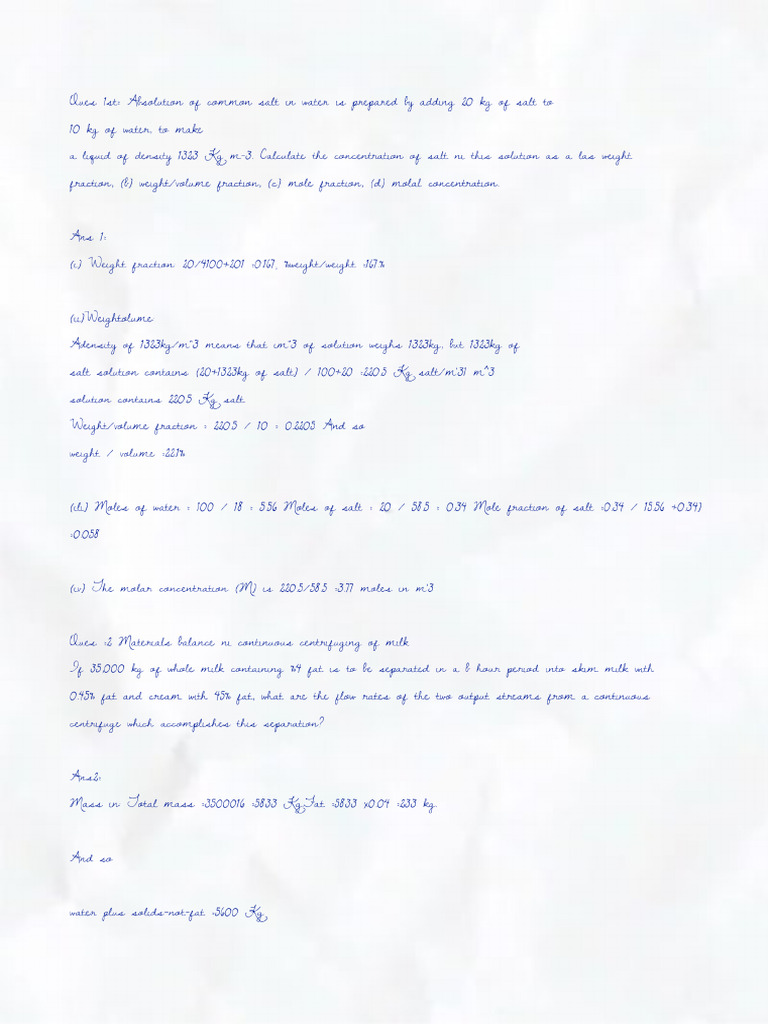 Ques 1st: Absolution of common salt in water is prepared by adding 20 kg of salt to
10 kg of water, to make
a liquid of density 1323 Kg m-3. Calculate the concentration of salt ni this solution as a las weight
fraction, (b) weight/volume fraction, (c) mole fraction, (d) molal concentration.
Ans 1:
(c) Weight fraction 20/4100+201 =0.167, %weight/weight =167%
(ii)Weightolume
Adensity of 1323kg/m^3 means that im^3 of solution weighs 1323kg, but 1323kg of
salt solution contains (20+1323kg of salt) / 100+20 =220.5 Kg salt/m^31 m^3
solution contains 220.5 Kg salt.
Weight/volume fraction = 220.5 / 10 = 0.2205 And so
weight / volume =22.1%
(di) Moles of water = 100 / 18 = 5.56 Moles of salt = 20 / 58.5 = 0.34 Mole fraction of salt =0.34 / 15.56 +0.34)
=0.058
(iv) The molar concentration (M) is 220.5/58.5 =3.77 moles in m^3
Ques :2 Materials balance ni continuous centrifuging of milk
If 35,000 kg of whole milk containing %4 fat is to be separated in a 6 hour period into skim milk with
0.45% fat and cream with 45% fat, what are the flow rates of the two output streams from a continuous
centrifuge which accomplishes this separation?
Ans2:
Mass in: Total mass =3500016 =5833 Kg.Fat =5833 x0.04 =233 kg.
And so
water plus solids-not-fat =5600 Kg.